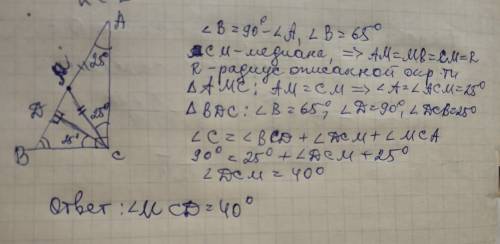 A
25°
M
D
25°
25°
B
C
∠B=90°-∠A, ∠B=65°
CM-медиана, => AM=MB=CM=R
R-радиус описанной окр-ти
△AMC: AM=CM => ∠A=∠ACM=25°
△BDC: ∠B=65°, ∠D=90°, ∠DCB=25°
∠C=∠BCD+∠DCM+∠MCA
90°=25°+∠DCM+25°
∠DCM=40°
Ответ: ∠MCD=40°